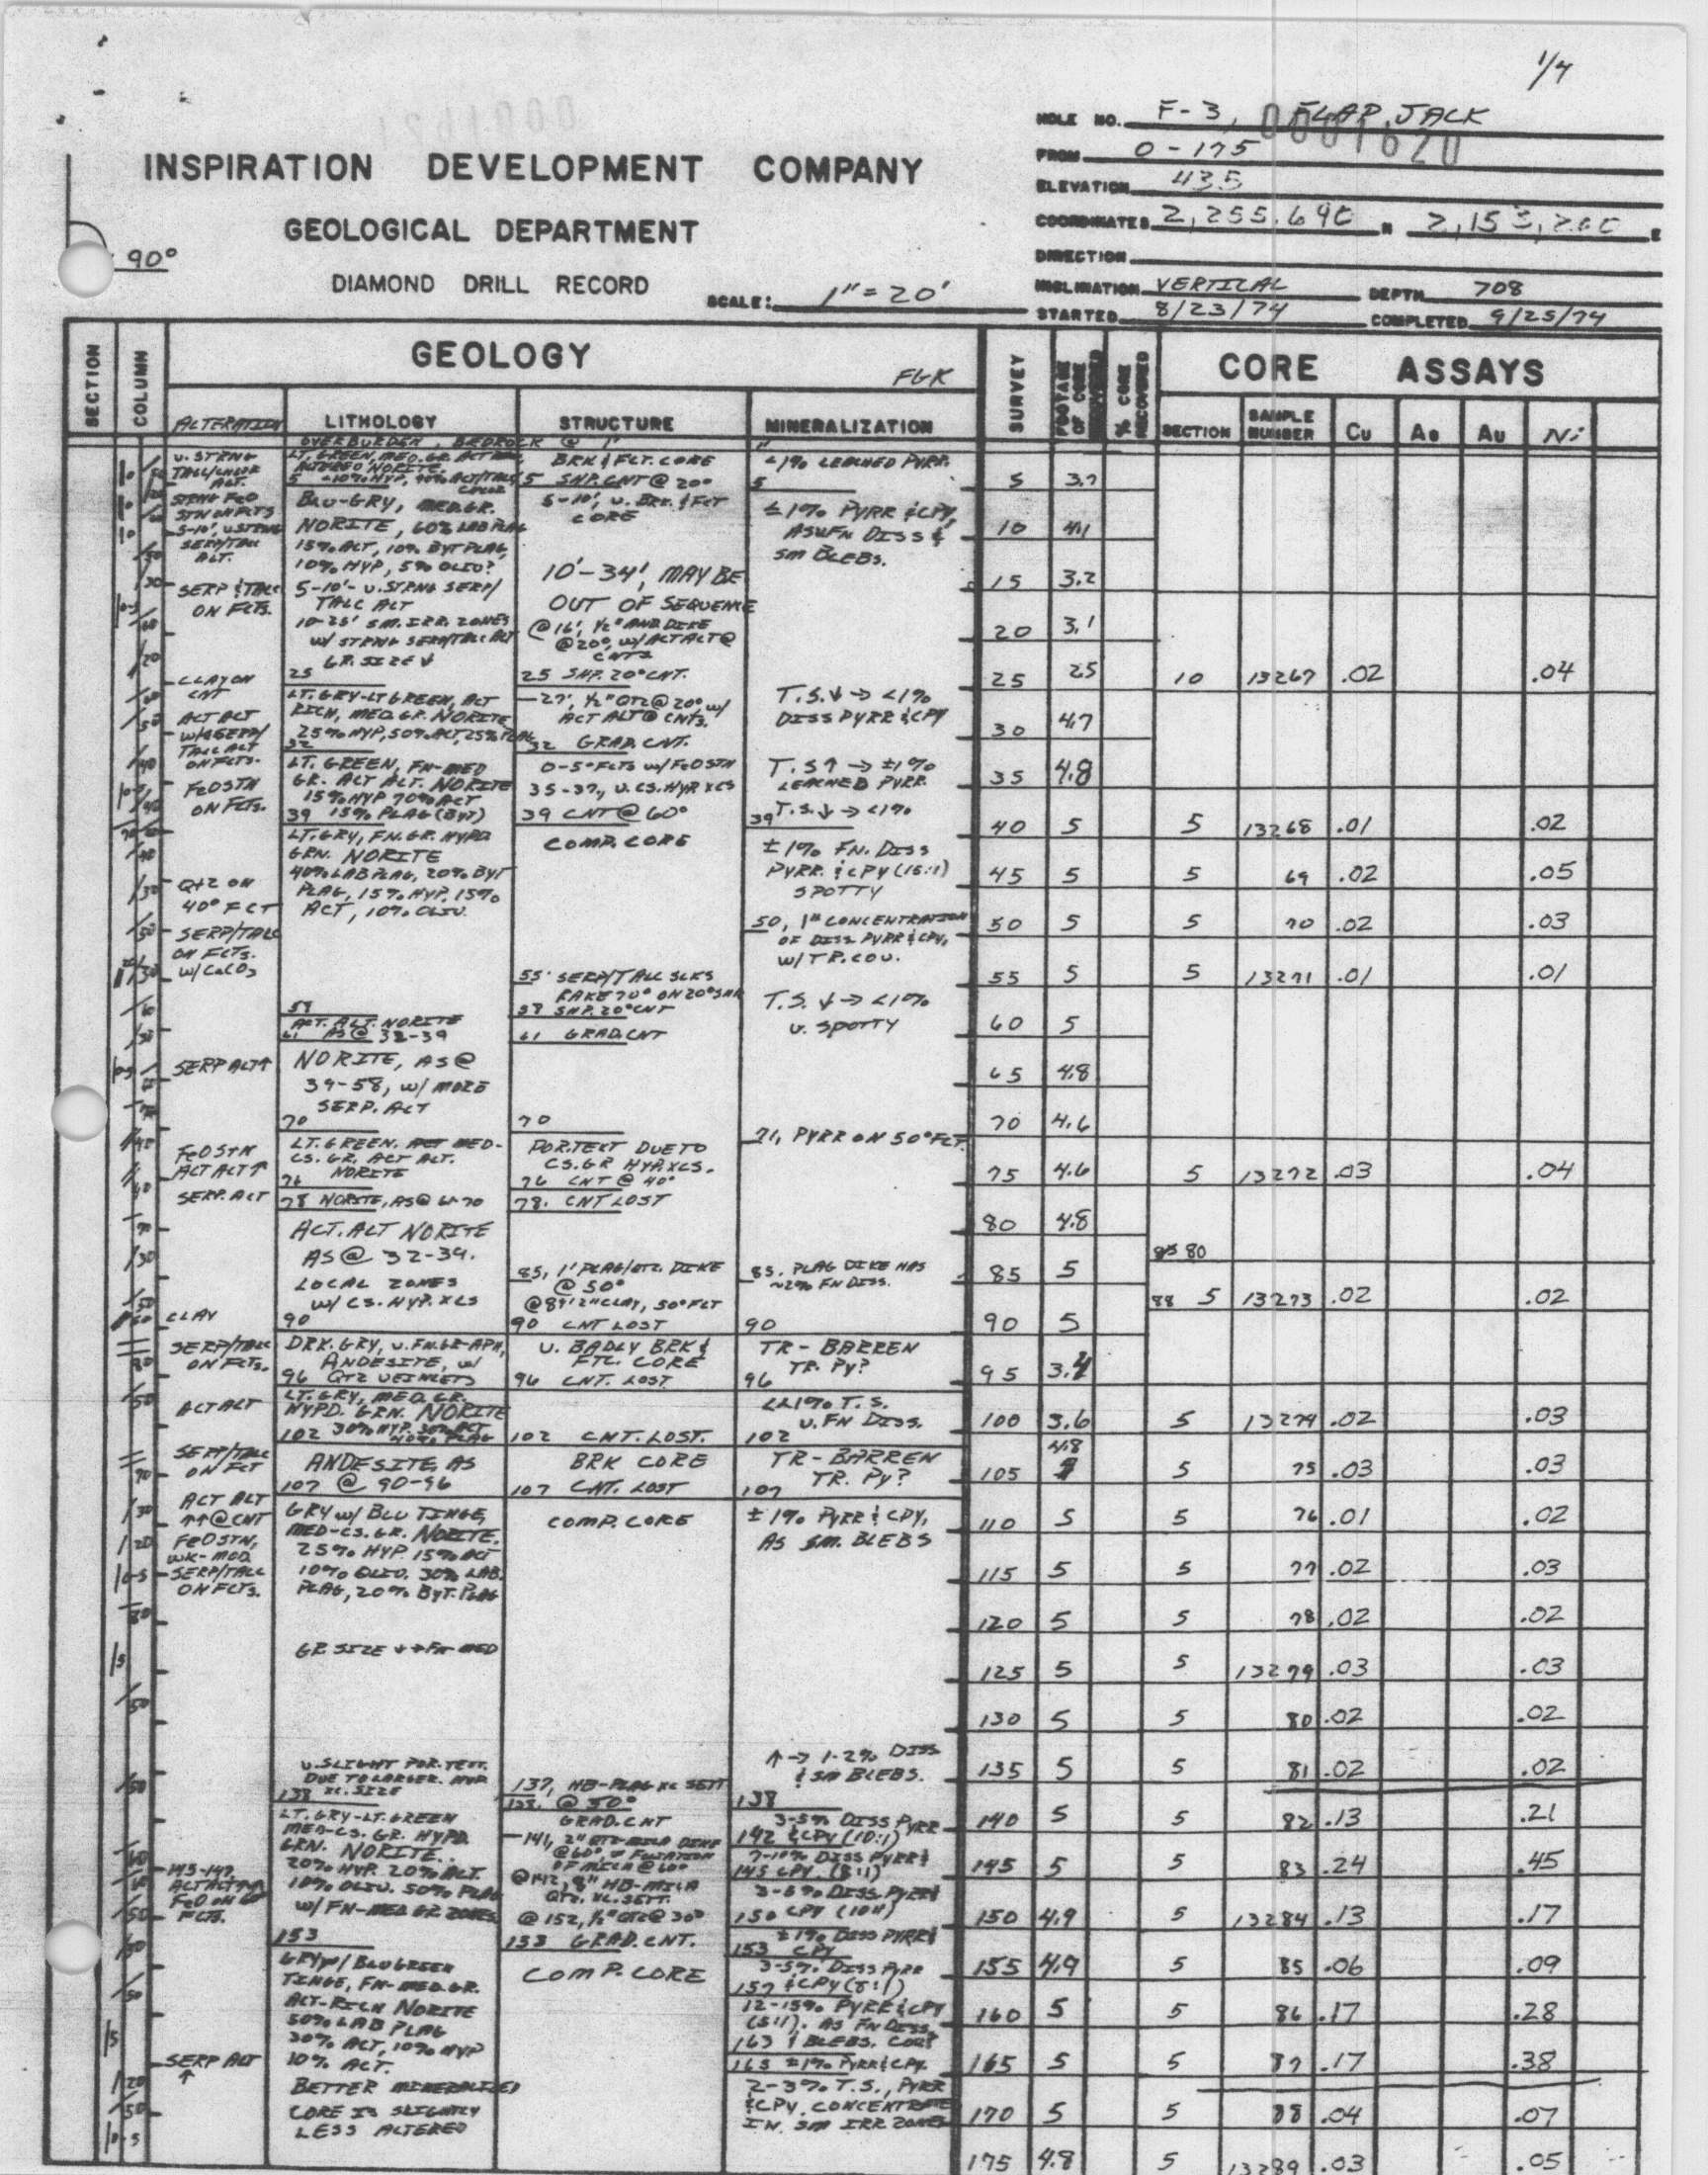 1/4
HOLE NO. F-3, FLAP JACK
0001620
FROM 0-175
ELEVATION 435
COORDINATES 2,255,690 N 2,153,200 E
DIRECTION
INCLINATION VERTICAL DEPTH 708
STARTED 8/23/74 COMPLETED 9/25/74
INSPIRATION DEVELOPMENT COMPANY
GEOLOGICAL DEPARTMENT
DIAMOND DRILL RECORD
90°
SCALE: 1" = 20'
SECTION
COLUMN
GEOLOGY
FGK
SURVEY
FOOTAGE OF CORE RECOVERED
% CORE RECOVERED
CORE ASSAYS
ALTERATION LITHOLOGY STRUCTURE MINERALIZATION
SECTION SAMPLE NUMBER Cu Ag Au Ni
V. STRNG
TALC/CHLOR
ALT.
STRNG FeO
STN ON FCTS
5-10', V. STRNG
SERP/TALC
ALT.
SERP & TALC
ON FCTS.
CLAY ON
CNT
ACT ALT
W/ & SERP/
TALC ALT
ON FCTS.
FeO STN
ON FCTS.
QTZ ON
40° FCT
SERP/TALC
ON FCTS.
W/ CaCO3
SERP ALT↑
FeO STN
ACT ALT↑
SERP. ALT
CLAY
SERP/TALC
ON FCTS.
ACT ALT
SERP/TALC
ON FCT
ACT ALT
↑↑@ CNT
FeO STN,
WK-MOD
SERP/TALC
ON FCTS.
143-147
FeO ON
FCTS.
SERP ALT
↑
OVERBURDEN, BEDROCK @ 1'
LT. GREEN, MED. GR. ACT
ALTERED NORITE.
5
BLU-GRY, MED. GR.
NORITE, 60% LAB PLAG
15% ACT, 10% BYT PLAG,
10% HYP, 5% OLIV?
5-10'- V. STRNG SERP/
TALC ALT
10-25' SM. IRR. ZONES
W/ STRNG SERP/TALC ALT
GR. SIZE ↓
25
LT. GRY-LT GREEN, ACT
RICH, MED GR. NORITE
25% HYP, 50% ACT, 25% PLAG
32
LT. GREEN, FN-MED
GR. ACT ALT. NORITE
15% HYP 70% ACT
39 15% PLAG (BYT)
LT. GRY, FN. GR. HYPD
GRN. NORITE
40% LAB PLAG, 20% BYT
PLAG, 15% HYP, 15%
ACT, 10% OLIV.
ACT. ALT. NORITE
61 AS @ 32-39
NORITE, AS @
39-58, W/ MORE
SERP. ALT
70
LT. GREEN, MED-
CS. GR. ACT ALT.
76 NORITE
78 NORITE, AS @ 61-70
ACT. ALT NORITE
AS @ 32-39.
LOCAL ZONES
W/ CS. HYP. XLS
90
DRK. GRY, V. FN. GR-APH,
ANDESITE, W/
96 QTZ VEINLETS
LT. GRY, MED GR.
HYPD. GRN. NORITE
102 30% HYP. 30% ACT
40% PLAG
ANDESITE, AS
107 @ 90-96
GRY W/ BLU TINGE,
MED-CS. GR. NORITE.
25% HYP 15% ACT
10% OLIV. 30% LAB.
PLAG, 20% BYT. PLAG
GR SIZE ↓→ FN-MED
V. SLIGHT POR. TEXT.
DUE TO LARGER HYP
138 XL. SIZE
LT. GRY-LT. GREEN
MED-CS. GR. HYPD
GRN. NORITE.
20% HYP. 20% ACT.
10% OLIV. 50% PLAG
W/ FN-MED GR ZONES
153
GRY W/ BLU GREEN
TINGE, FN-MED. GR.
ACT-RICH NORITE
50% LAB PLAG
30% ACT, 10% HYP
10% ACT.
BETTER MINERALIZED
CORE IS SLIGHTLY
LESS ALTERED
BRK & FCT. CORE
5 SHP. CNT @ 20°
5-10', V. BRK. & FCT
CORE
10'-34', MAY BE
OUT OF SEQUENCE
@ 16', 1/2" AND DIKE
@ 20°, W/ ACT ALT @
CNTS
25 SHP. 20° CNT.
-27', 1/2" QTZ @ 20°, W/
ACT ALT @ CNTS.
32 GRAD. CNT.
0-5° FCTS W/ FeO STN
35-37, V. CS. HYP XLS
39 CNT @ 60°
COMP. CORE
55' SERP/TALC SLKS
RAKE 70° ON 20° SHR
58 SHP. 20° CNT
61 GRAD. CNT
70
POR. TEXT DUE TO
CS. GR HYP. XLS.
76 CNT @ 40°
78. CNT LOST
85, 1' PLAG/QTZ. DIKE
@ 50°
@ 89' 2" CLAY, 50° FCT
90 CNT LOST
V. BADLY BRK &
FTC. CORE
96 CNT. LOST
102 CNT. LOST.
BRK CORE
107 CNT. LOST
COMP. CORE
137, HB-PLAG XL SETT
138. @ 50°
GRAD. CNT
-141, 2" QTZ-MICA DIKE
@ 60°, W/ FOLIATION
OF MICA @ 60°
@ 142, 8" HB-MICA
QTZ. XL. SETT.
@ 152, 1/2" QTZ @ 30°
153 GRAD. CNT.
COMP. CORE
1'
<1% LEACHED PYRR.
5
≤1% PYRR & CPY,
AS V FN DISS &
SM BLEBS.
T.S. ↓ → <1%
DISS PYRR & CPY
T.S ↑ → ±1%
LEACHED PYRR.
39 T.S. ↓ → <1%
±1% FN. DISS
PYRR. & CPY (15:1)
SPOTTY
50, 1" CONCENTRATION
OF DISS PYRR & CPY,
W/ TR. COV.
T.S. ↓ → <1%
V. SPOTTY
71, PYRR ON 50° FCT.
85. PLAG DIKE HAS
~2% FN DISS.
90
TR - BARREN
TR. Py?
96
<<1% T.S.
V. FN DISS.
102
TR-BARREN
TR. Py?
107
±1% PYRR & CPY,
AS SM. BLEBS
↑ → 1-2% DISS
& SM BLEBS.
138
3-5% DISS PYRR
142 & CPY (10:1)
7-10% DISS PYRR &
145 CPY. (8:1)
3-5% DISS. PYRR &
150 CPY (10:1)
±1% DISS PYRR &
153 CPY
3-5% DISS PYRR
157 & CPY (5:1)
12-15% PYRR & CPY
(5:1). AS FN DISS,
163 & BLEBS.
165 ±1% PYRR & CPY.
2-3% T.S., PYRR
& CPY CONCENTRATE
IN SM IRR ZONES
5 3.7
10 4.1
15 3.2
20 3.1
25 25 10 13267 .02 .04
30 4.7
35 4.8
40 5 5 13268 .01 .02
45 5 5 69 .02 .05
50 5 5 70 .02 .03
55 5 5 13271 .01 .01
60 5
65 4.8
70 4.6
75 4.6 5 13272 .03 .04
80 4.8
80
85 5
88 5 13273 .02 .02
90 5
95 3.4
100 3.6 5 13274 .02 .03
105 4.8 5 75 .03 .03
110 5 5 76 .01 .02
115 5 5 77 .02 .03
120 5 5 78 .02 .02
125 5 5 13279 .03 .03
130 5 5 80 .02 .02
135 5 5 81 .02 .02
140 5 5 82 .13 .21
145 5 5 83 .24 .45
150 4.9 5 13284 .13 .17
155 4.9 5 85 .06 .09
160 5 5 86 .17 .28
165 5 5 87 .17 .38
170 5 5 88 .04 .07
175 4.8 5 13289 .03 .05